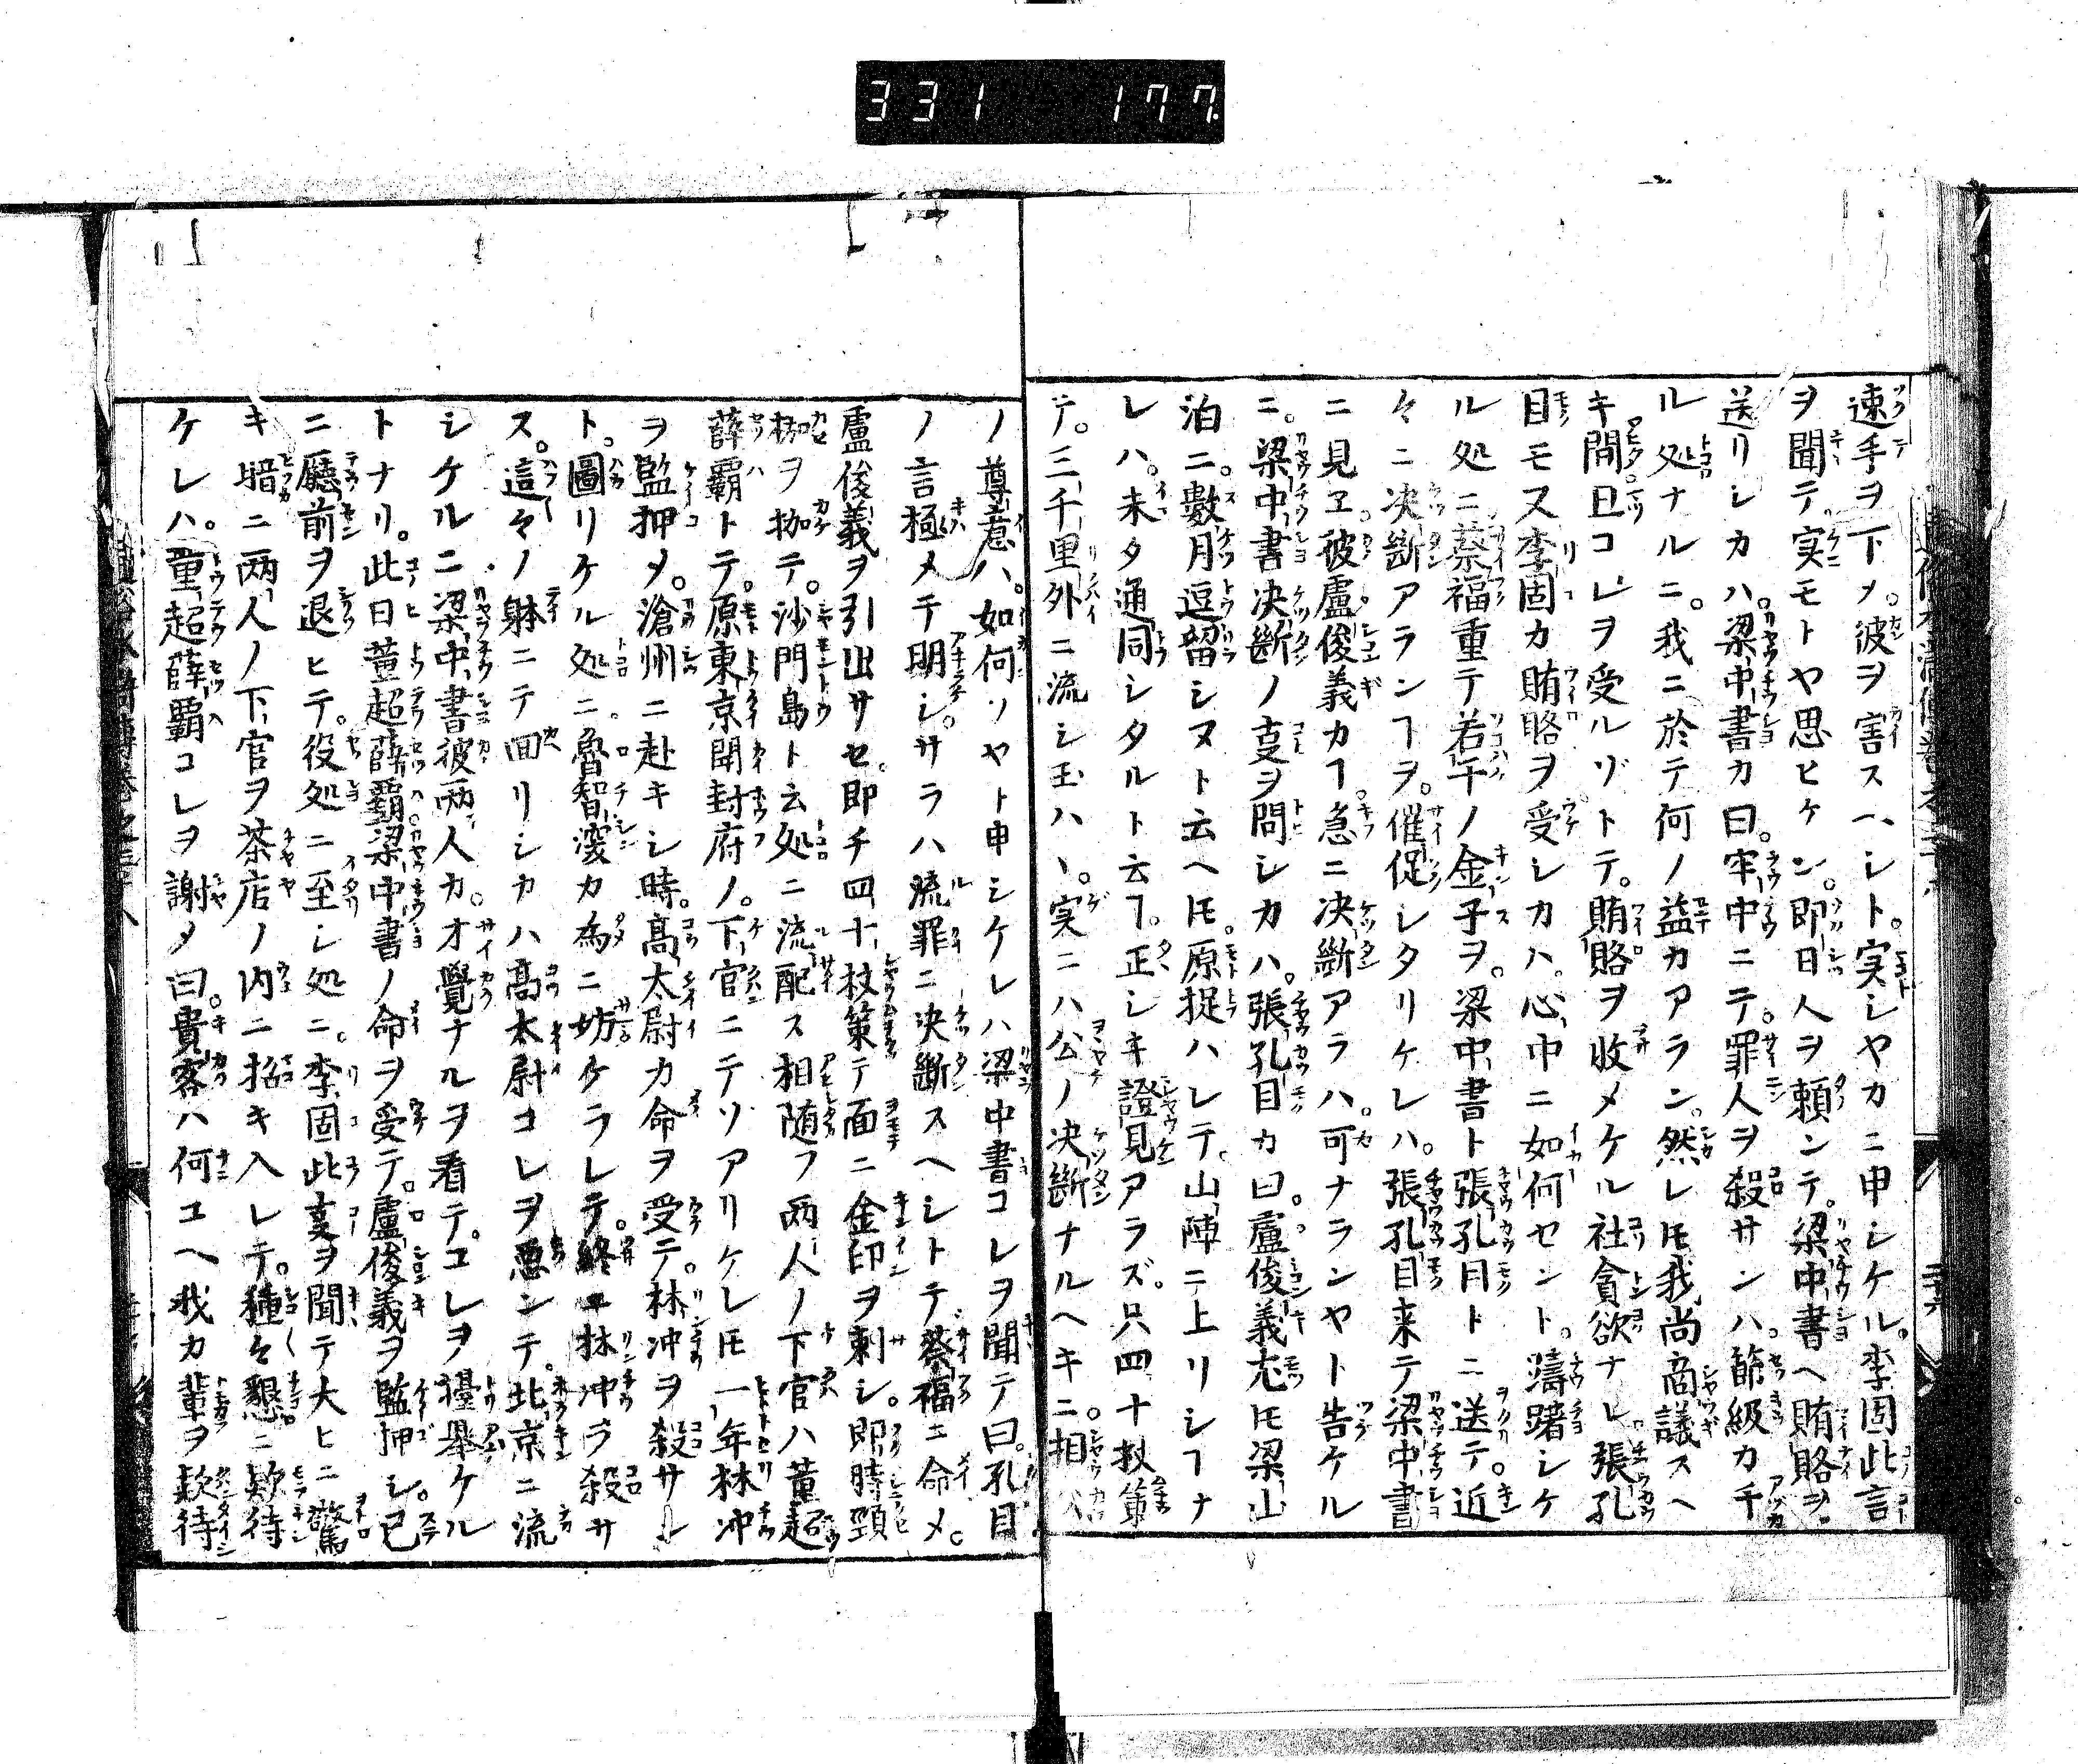 331 177
速手ヲ下メ。彼ヲ害スヘシト。実シヤカニ申シケル。李固此言
ヲ聞テ。実モトヤ思ヒケン。即日人ヲ頼ンテ。梁中書ヘ賄賂ヲ
送リシカハ。梁中書カ曰。牢中ニテ。罪人ヲ殺サンハ。節級カ千
ル処ナルニ。我ニ於テ何ノ益カアラン。然レ𪜈我尚商議スヘ
キ間。且コレヲ受ルゾトテ。賄賂ヲ收メケル社貪欲ナレ。張孔
目モ又李固カ賄賂ヲ受シカハ。心中ニ如何セント。躊躇シケ
ル処ニ蔡福重テ若干ノ金子ヲ。梁中書ト張孔目トニ送テ。近
々ニ决斷アランヿヲ。催促シタリケレハ。張孔目来テ梁中書
ニ見ヱ彼盧俊義カヿ。急ニ决斷アラハ。可ナランヤト告ケル
ニ。梁中書决斷ノ叓ヲ問シカハ。張孔目カ曰。盧俊義㐬𪜈梁山
泊ニ。數月逗留シヌト云ヘ𪜈。原捉ハレテ。山陣ニ上リシヿナ
レハ。未タ通同シタルト云ヿ。正シキ證見アラズ。只四十杖策
テ。三千里外ニ流シ玉ハヽ。実ニハ公ノ决斷ナルヘキニ。相公
ノ尊意ハ。如何ソヤト申シケレハ梁中書コレヲ聞テ曰。孔目
ノ言極メテ明シ。サラハ流罪ニ决斷スヘシトテ蔡福ニ命メ。
盧俊義ヲ引出サセ。即チ四十杖策テ面ニ金印ヲ刺シ。即時頸
枷ヲ枷テ。沙門島ト云処ニ流配ス相随フ両人ノ下官ハ董超
薛覇トテ。原東京開封府ノ。下官ニテソアリケレ𪜈一年林冲
ヲ監押メ。滄州ニ赴キシ時。髙太尉カ命ヲ受テ。林冲ヲ殺サレ
ト。圖リケル処ニ。魯智深カ為ニ妨ケラレテ。終ニ林冲ヲ殺サ
ス。這々ノ躰ニテ囬リシカハ髙太尉コレヲ悪ンテ。北京ニ流
シケルニ梁中書彼両人カ。才覺ナルヲ看テ。コレヲ擡舉ケル
トナリ。此日董超薛覇梁中書ノ命ヲ受テ。盧俊義ヲ監押シ。已
ニ廳前ヲ退ヒテ。役処ニ至レ処ニ。李固此叓ヲ聞テ大ヒニ驚
キ暗ニ両人ノ下官ヲ茶店ノ内ニ招キ入レテ。種々懇ニ欵待
ケレハ。董超薛覇コレヲ謝メ曰。貴客ハ何ユヘ我カ輩ヲ欵待